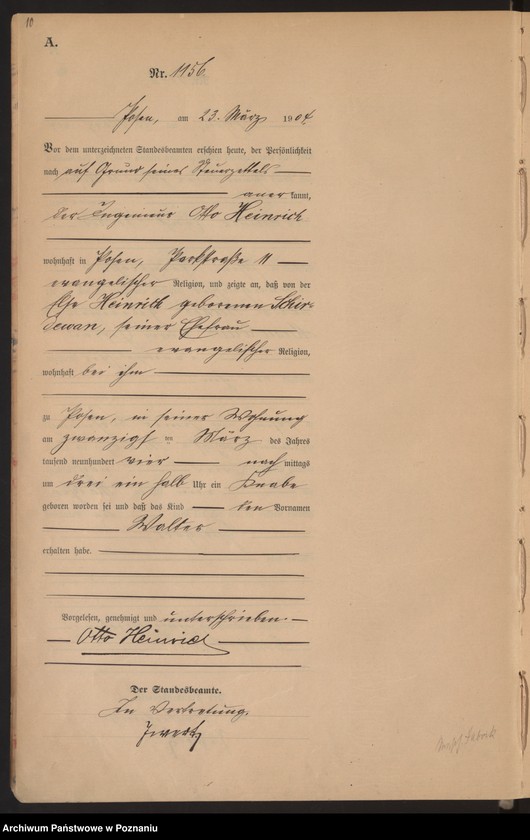 10
A.
Nr. 1156
Posen, am 23. März 1904
Vor dem unterzeichneten Standesbeamten erschien heute, der Persönlichkeit
nach auf Grund seines Steuerzettels
anerkannt,
der Ingenieur Otto Heinrich
wohnhaft in Posen, Parkstraße 11
evangelischer Religion, und zeigte an, daß von der
Else Heinrich geborenen Schir-
dewan, seiner Ehefrau
evangelischer Religion,
wohnhaft bei ihm
zu Posen, in seiner Wohnung
am zwanzigsten März des Jahres
tausend neunhundert vier nachmittags
um drei ein halb Uhr ein Knabe
geboren worden sei und daß das Kind den Vornamen
Walter
erhalten habe.
Vorgelesen, genehmigt und unterschrieben.
Otto Heinrich
Der Standesbeamte.
In Vertretung.
Archiwum Państwowe w Poznaniu